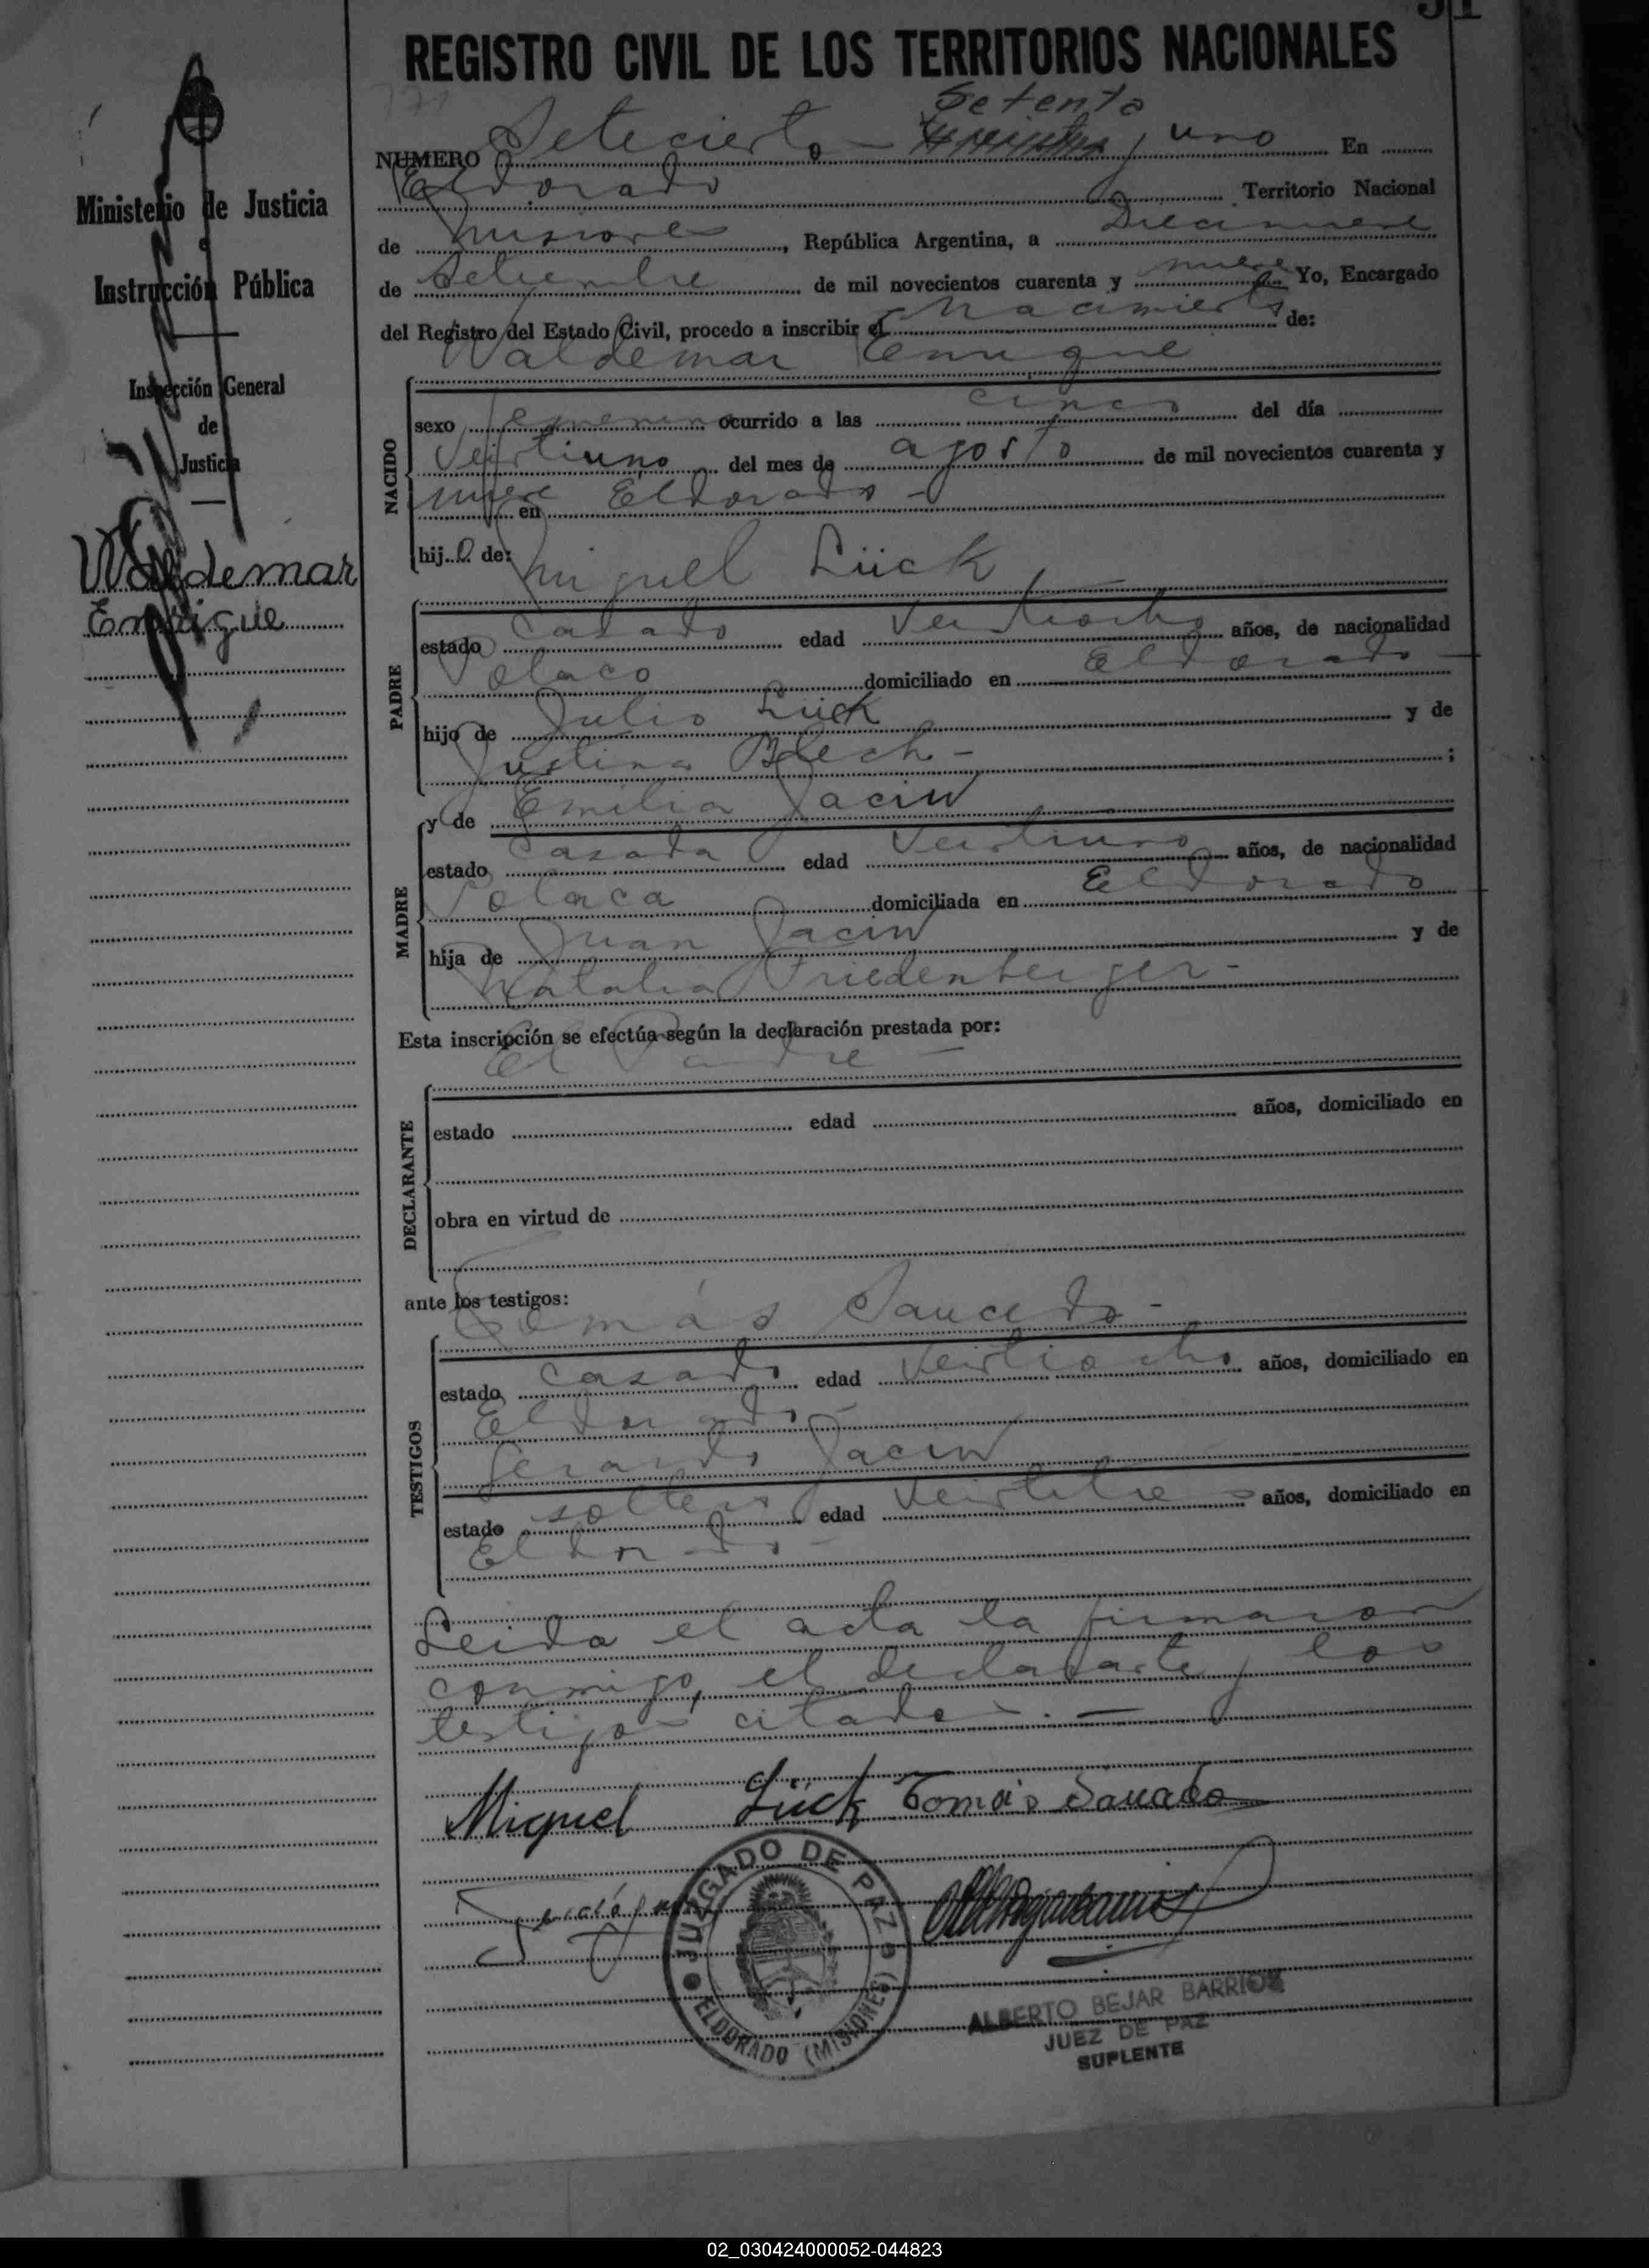 51
REGISTRO CIVIL DE LOS TERRITORIOS NACIONALES
771
Setenta
NUMERO Setecientos y uno En
Eldorado Territorio Nacional
de Misiones, República Argentina, a Diecinueve
de Setiembre de mil novecientos cuarenta y nueve Yo, Encargado
del Registro del Estado Civil, procedo a inscribir el Nacimiento de:
Waldemar Enrique
NACIDO
sexo femenino ocurrido a las cinco del día
veintiuno del mes de agosto de mil novecientos cuarenta y
nueve en Eldorado -
hijo de: Miguel Lück
PADRE
estado Casado edad Veintiocho años, de nacionalidad
Polaco domiciliado en Eldorado
hijo de Julio Lück y de
Justina Blech - ;
y de Emilia Jacin
MADRE
estado Casada edad Veintiuno años, de nacionalidad
Polaca domiciliada en Eldorado
hija de Juan Jacin y de
Natalia Friedenberger -
Esta inscripción se efectúa según la declaración prestada por:
El Padre -
DECLARANTE
estado edad años, domiciliado en
obra en virtud de
ante los testigos:
Tomás Saucedo -
TESTIGOS
estado casado edad Veintiocho años, domiciliado en
Eldorado -
Gerardo Jacin
estado soltero edad Veintitres años, domiciliado en
Eldorado -
Leida el acta la firmaron
conmigo, el declarante y los
testigos citados. -
Miguel Lück Tomás Saucedo
JUZGADO DE PAZ
ELDORADO (MISIONES)
ALBERTO BEJAR BARRIOS
JUEZ DE PAZ
SUPLENTE
Ministerio de Justicia
e
Instrucción Pública
Inspección General
de
Justicia
Waldemar
Enrique
02_030424000052-044823